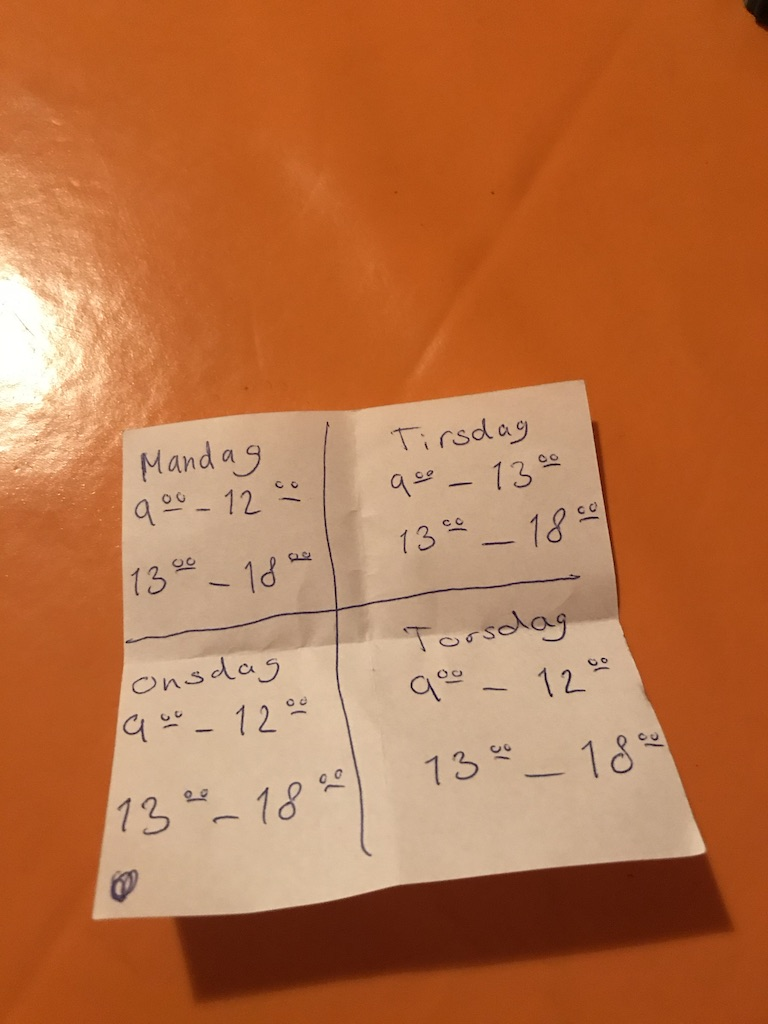 Mandag
9⁰⁰ - 12⁰⁰
13⁰⁰ - 18⁰⁰
Tirsdag
9⁰⁰ - 13⁰⁰
13⁰⁰ - 18⁰⁰
Onsdag
9⁰⁰ - 12⁰⁰
13⁰⁰ - 18⁰⁰
Torsdag
9⁰⁰ - 12⁰⁰
13⁰⁰ - 18⁰⁰